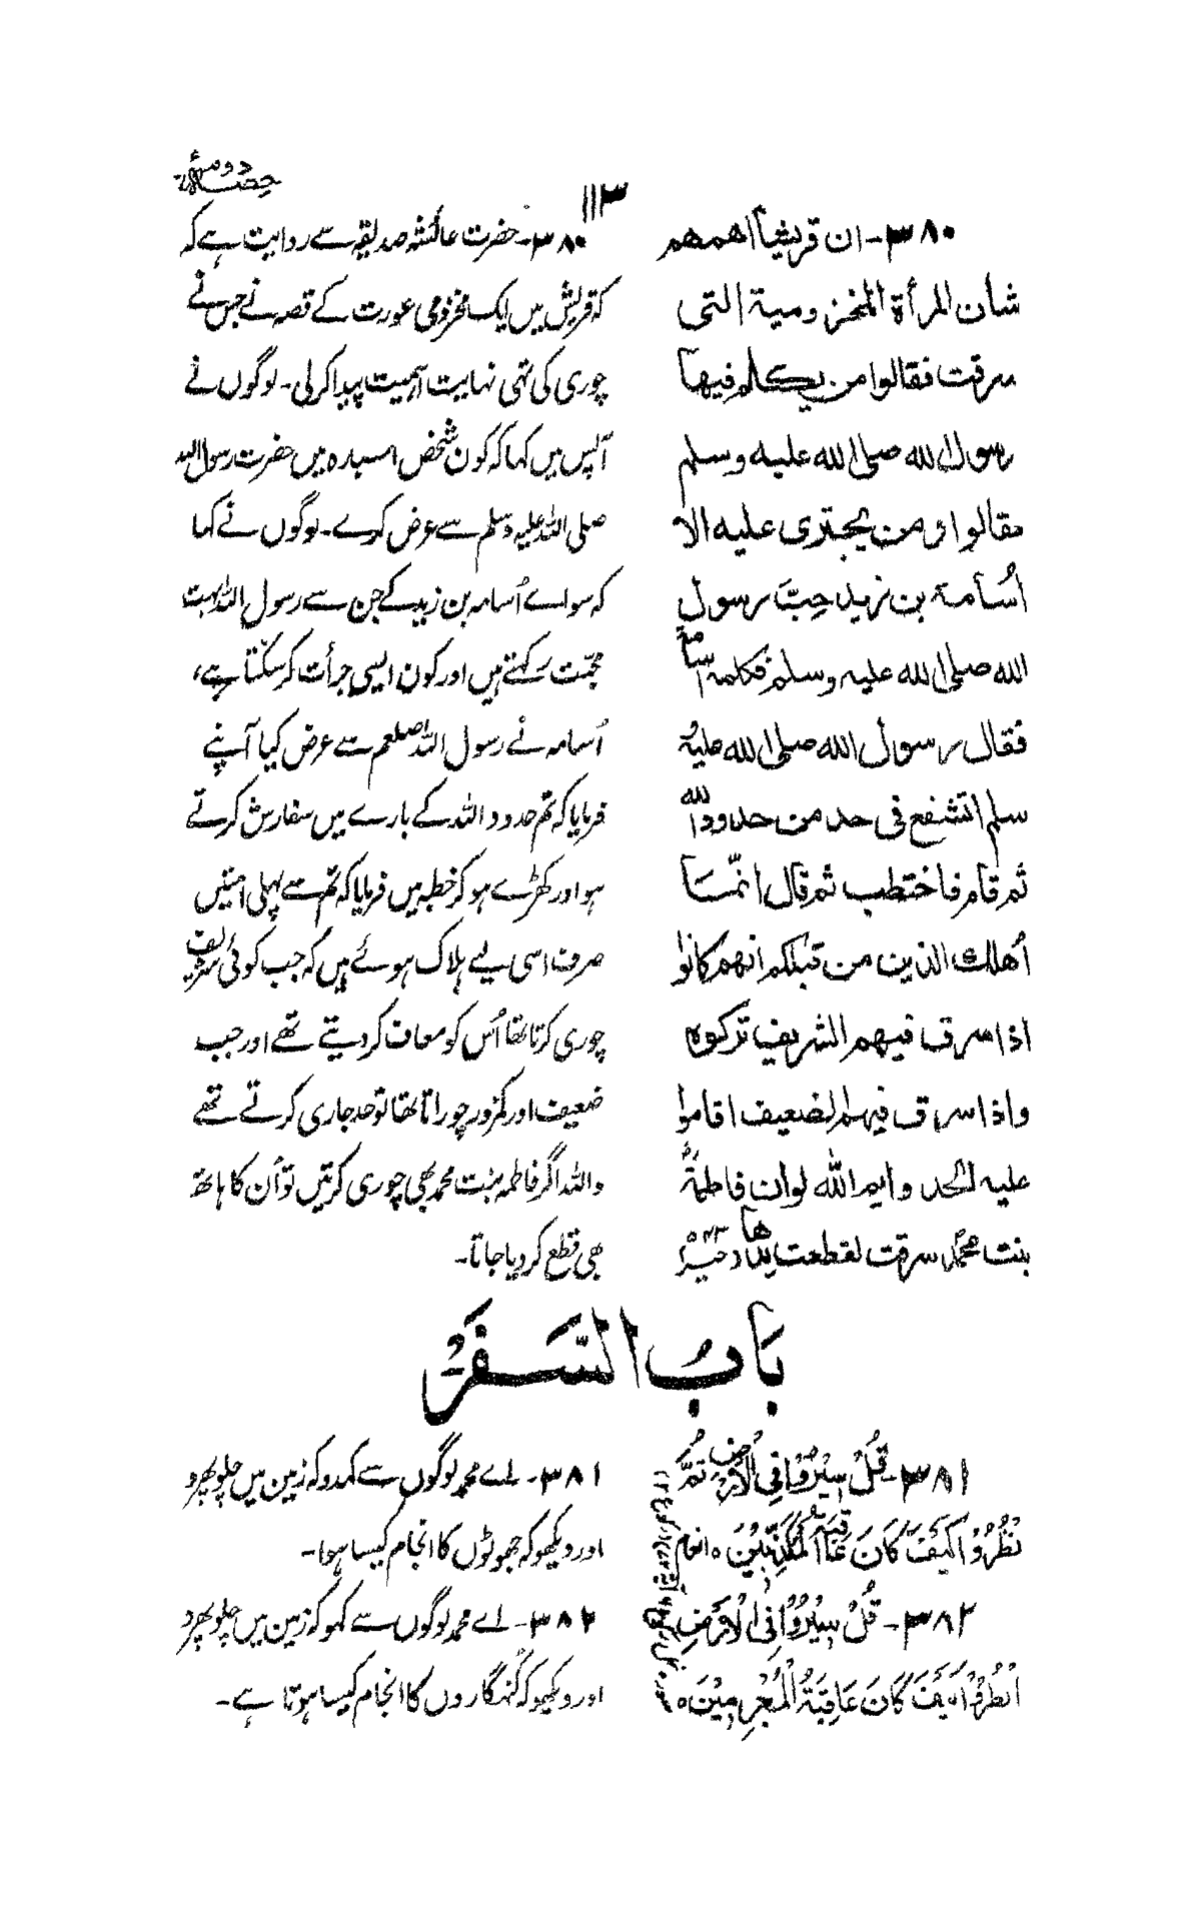 حصہ دوم
۱۱۳
۳۸۰۔ ان قریشا اھمھم
شأن المرأۃ المخزومیۃ التی
سرقت فقالوا من یکلم فیھا
رسول اللہ صلی اللہ علیہ وسلم
فقالوا و من یجتری علیہ الا
اُسامۃ بن زید حِبَّ رسول
اللہ صلی اللہ علیہ وسلم فکلمہ اسامۃ
فقال رسول اللہ صلی اللہ علیہ
سلم اتشفع فی حد من حدود اللہ
ثم قام فاختطب ثم قال انّما
أھلک الذین من قبلکم انھم کانوا
اذا سرق فیھم الشریف ترکوہ
واذا سرق فیھم الضعیف اقاموا
علیہ الحد وایم اللہ لو ان فاطمۃ
بنت محمد سرقت لقطعت یدھا
۳۸۰۔ حضرت عائشہ صدیقہ سے روایت ہے کہ
کہ قریش میں ایک مخزومی عورت کے قصہ نے جس نے
چوری کی تھی نہایت اہمیت پیدا کرلی۔ لوگوں نے
آپس میں کہا کہ کون شخص اس بارہ میں حضرت رسول اللہ
صلی اللہ علیہ وسلم سے عرض کرے۔ لوگوں نے کہا
کہ سواے اُسامہ بن زید کے جن سے رسول اللہ بہت
محبّت رکھتے ہیں اور کون ایسی جرأت کر سکتا ہے،
اُسامہ نے رسول اللہ صلعم سے عرض کیا آپ نے
فرمایا کہ تم حدود اللہ کے بارے میں سفارش کرتے
ہو اور کھڑے ہو کر خطبہ میں فرمایا کہ تم سے پہلی امتیں
صرف اسی لیے ہلاک ہوئے ہیں کہ جب کوئی شریف
چوری کرتا تھا اُس کو معاف کر دیتے تھے اور جب
ضعیف اور کمزور چوراتا تھا تو حد جاری کرتے تھے
واللہ اگر فاطمہ بنت محمد بھی چوری کرتیں تو اُن کا ہاتھ
بھی قطع کر دیا جاتا۔
بَابُ السَّفَرْ
۳۸۱۔ قُلْ سِیْرُوْا فِی الْاَرْضِ ثُمَّ
نْظُرُوْا کَیْفَ کَانَ عَاقِبَۃُ الْمُکَذِّبِیْنَ ہ انعام
۳۸۲۔ قُلْ سِیْرُوْا فِی الْاَرْضِ
انْظُرُوْا کَیْفَ کَانَ عَاقِبَۃُ الْمُجْرِمِیْنَ ہ
۳۸۱۔ اے محمد لوگوں سے کہدو کہ زمین میں چلو پھرو
اور دیکھو کہ جھوٹوں کا انجام کیسا ہوا۔
۳۸۲۔ اے محمد لوگوں سے کہو کہ زمین میں چلو پھرو
اور دیکھو کہ گنہگاروں کا انجام کیسا ہوتا ہے۔